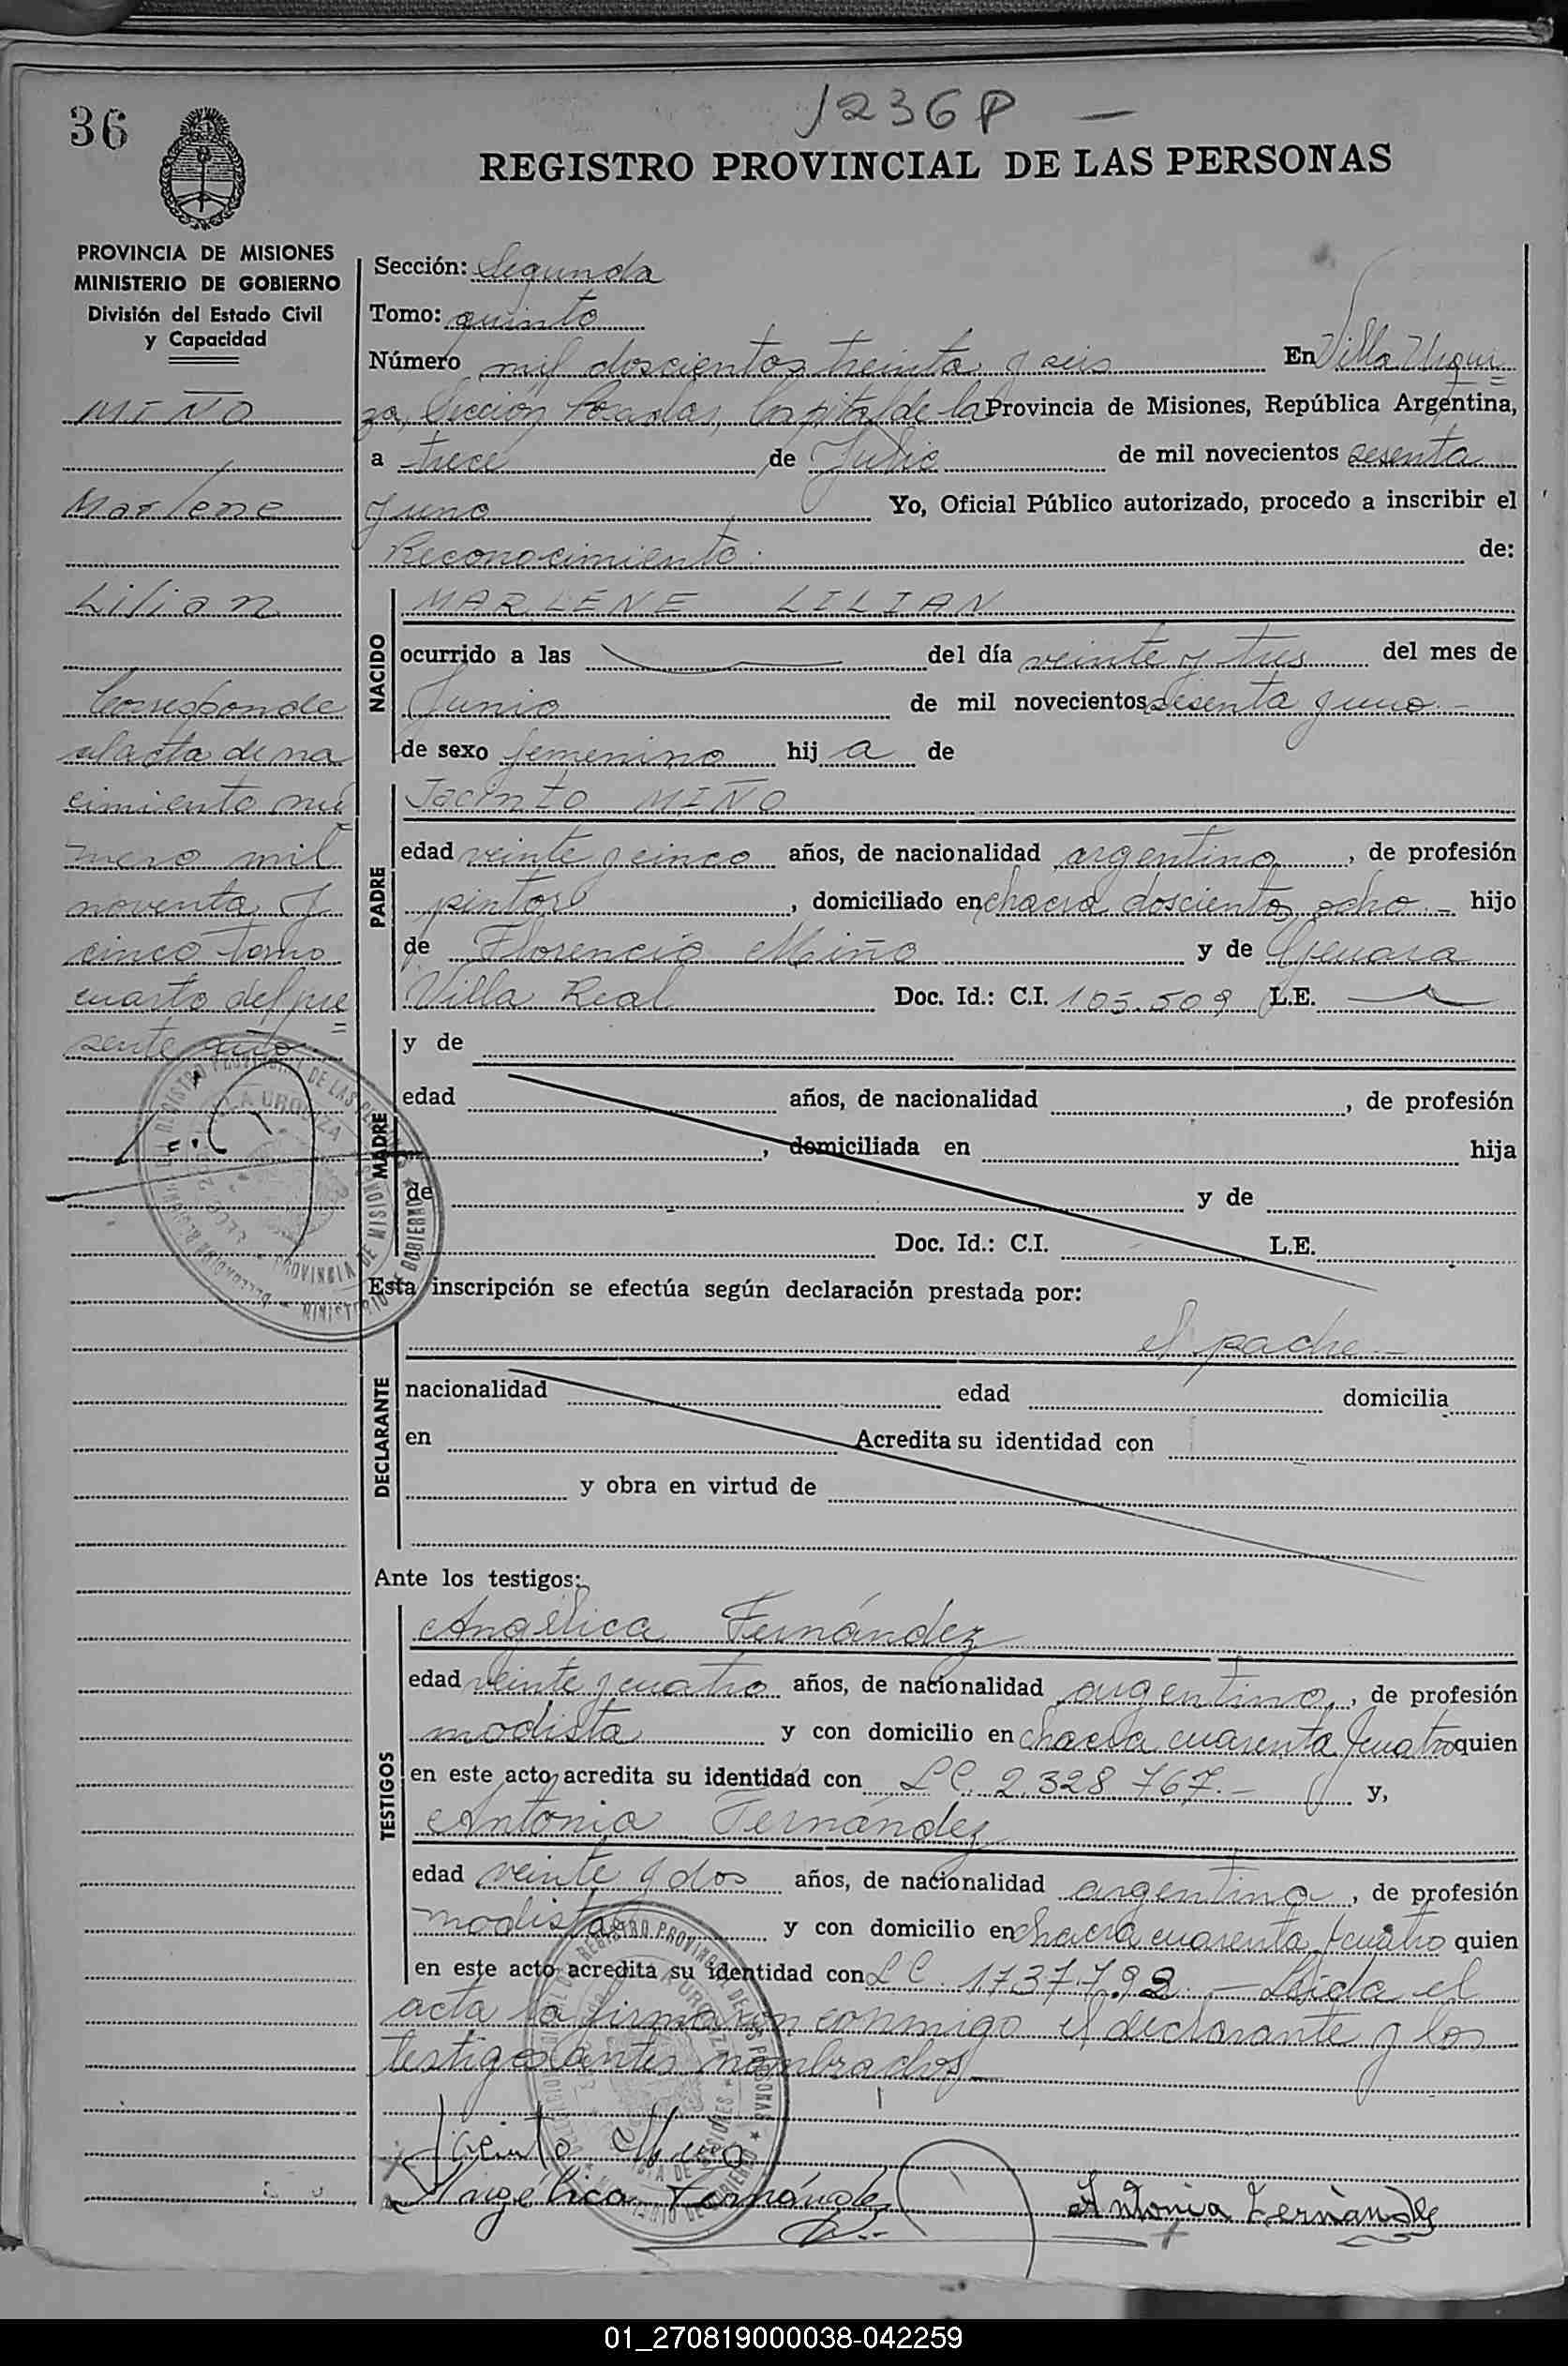 36
1236 P —
REGISTRO PROVINCIAL DE LAS PERSONAS
PROVINCIA DE MISIONES
MINISTERIO DE GOBIERNO
División del Estado Civil
y Capacidad
MIÑO
Marlene
Lilian
Corresponde
al acta de na
cimiento nú
mero mil
noventa y
cinco tomo
cuarto del pre
sente año
Sección: Segunda
Tomo: quinto
Número mil doscientos treinta y seis En Villa Urqui
za, Sección Posadas, Capital de la Provincia de Misiones, República Argentina,
a trece de Julio de mil novecientos sesenta
y uno Yo, Oficial Público autorizado, procedo a inscribir el
Reconocimiento de:
NACIDO
MARLENE LILIAN
ocurrido a las del día veinte y tres del mes de
Junio de mil novecientos sesenta y uno.-
de sexo femenino hij a de
PADRE
Jacinto MIÑO
edad veinte y cinco años, de nacionalidad argentina, de profesión
pintor, domiciliado en chacra doscientos ocho.- hijo
de Florencio Miño y de Genara
Villa Real Doc. Id.: C.I. 105.509 L.E.
MADRE
y de
edad años, de nacionalidad , de profesión
, domiciliada en hija
de y de
Doc. Id.: C.I. L.E.
Esta inscripción se efectúa según declaración prestada por:
el padre.-
DECLARANTE
nacionalidad edad domicilia
en Acredita su identidad con
y obra en virtud de
Ante los testigos:
TESTIGOS
Angélica Fernández
edad veinte y cuatro años, de nacionalidad argentina, de profesión
modista y con domicilio en chacra cuarenta y cuatro quien
en este acto acredita su identidad con L C. 2.328.767.- y,
Antonia Fernández
edad veinte y dos años, de nacionalidad argentina, de profesión
modista y con domicilio en chacra cuarenta y cuatro quien
en este acto acredita su identidad con L C. 1.737.792.- Leída el
acta la firmaron conmigo el declarante y los
testigos antes nombrados.-
Jacinto Miño
Angélica Fernández
Antonia Fernández
01_270819000038-042259